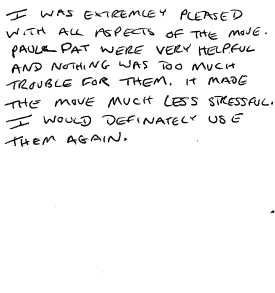 I WAS EXTREMLEY PLEASED
WITH ALL ASPECTS OF THE MOVE.
PAUL & PAT WERE VERY HELPFUL
AND NOTHING WAS TOO MUCH
TROUBLE FOR THEM. IT MADE
THE MOVE MUCH LESS STRESSFUL.
I WOULD DEFINATELY USE
THEM AGAIN.